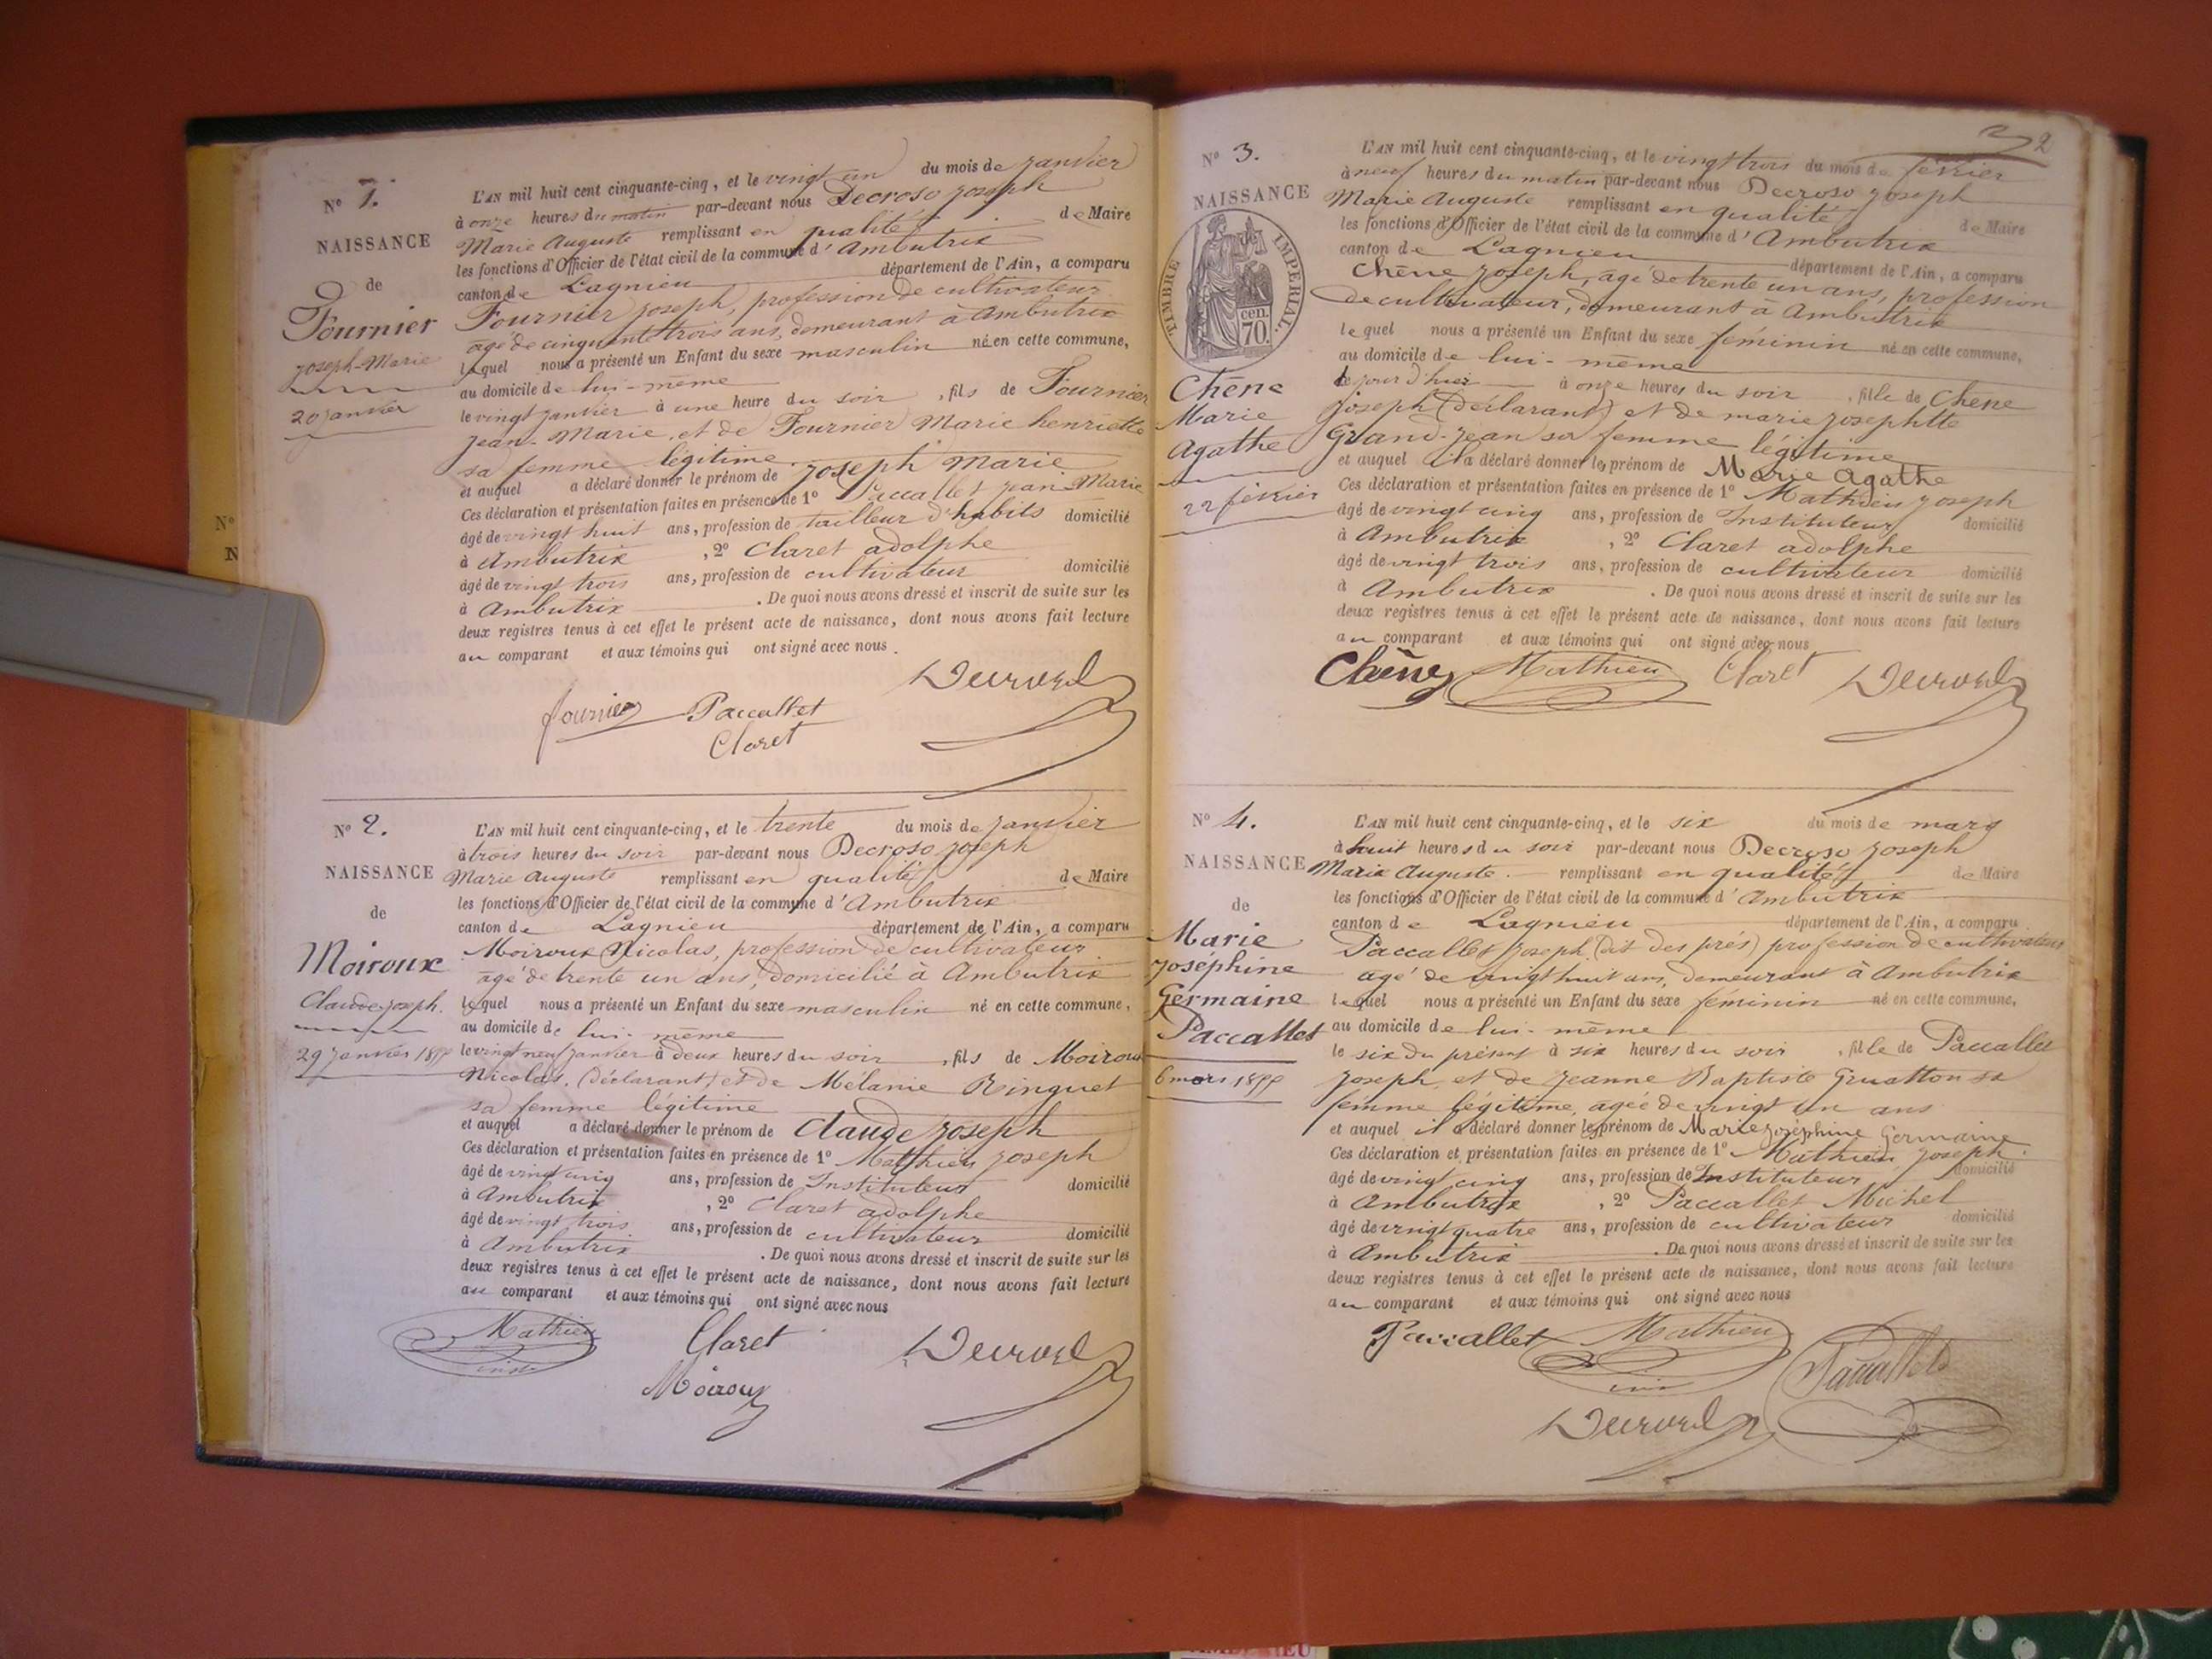 Nº 1.
NAISSANCE
de
Fournier
Joseph-Marie
20 janvier
L'AN mil huit cent cinquante-cinq, et le vingt un du mois de janvier
à onze heures du matin par-devant nous Decroso joseph
Marie Auguste remplissant en qualité de Maire
les fonctions d'Officier de l'état civil de la commune d'Ambutrix
canton de Lagnieu département de l'Ain, a comparu
Fournier joseph, profession de cultivateur
agé de cinquante trois ans, demeurant à Ambutrix
lequel nous a présenté un Enfant du sexe masculin né en cette commune,
au domicile de lui-même
le vingt janvier à une heure du soir, fils de Fournier
jean-Marie, et de Fournier Marie henriette
sa femme légitime
et auquel a déclaré donner le prénom de joseph Marie
Ces déclaration et présentation faites en présence de 1º Paccallet jean-Marie
âgé de vingt huit ans, profession de tailleur d'habits domicilié
à Ambutrix, 2º Claret adolphe
âgé de vingt trois ans, profession de cultivateur domicilié
à Ambutrix. De quoi nous avons dressé et inscrit de suite sur les
deux registres tenus à cet effet le présent acte de naissance, dont nous avons fait lecture
au comparant et aux témoins qui ont signé avec nous.
Decroso
fournier Paccallet
Claret
Nº 2.
NAISSANCE
de
Moiroux
Claude joseph.
29 janvier 1855
L'AN mil huit cent cinquante-cinq, et le trente du mois de janvier
à trois heures du soir par-devant nous Decroso joseph
Marie Auguste remplissant en qualité de Maire
les fonctions d'Officier de l'état civil de la commune d'Ambutrix
canton de Lagnieu département de l'Ain, a comparu
Moiroux Nicolas, profession de cultivateur
agé de trente un ans, domicilié à Ambutrix
lequel nous a présenté un Enfant du sexe masculin né en cette commune,
au domicile de lui-même
le vingt neuf janvier à deux heures du soir, fils de Moiroux
Nicolas, (déclarant) et de Mélanie Ringuet
sa femme légitime
et auquel a déclaré donner le prénom de Claude joseph
Ces déclaration et présentation faites en présence de 1º Mathieu joseph
âgé de vingt cinq ans, profession de Instituteur domicilié
à Ambutrix, 2º Claret adolphe
âgé de vingt trois ans, profession de cultivateur domicilié
à Ambutrix. De quoi nous avons dressé et inscrit de suite sur les
deux registres tenus à cet effet le présent acte de naissance, dont nous avons fait lecture
au comparant et aux témoins qui ont signé avec nous
Mathieu Claret Decroso
Moiroux
2
Nº 3.
NAISSANCE
TIMBRE IMPERIAL.
cen.
70.
Chêne
Marie
Agathe
22 février
L'AN mil huit cent cinquante-cinq, et le vingt trois du mois de février
à neuf heures du matin par-devant nous Decroso joseph
Marie Auguste remplissant en qualité de Maire
les fonctions d'Officier de l'état civil de la commune d'Ambutrix
canton de Lagnieu département de l'Ain, a comparu
Chêne joseph, agé de trente un ans, profession
de cultivateur, demeurant à Ambutrix
lequel nous a présenté un Enfant du sexe féminin né en cette commune,
au domicile de lui-même
le jour d'hier à onze heures du soir, fille de Chene
joseph (déclarant) et de marie josephtte
Grand-jean sa femme légitime
et auquel il a déclaré donner les prénom de Marie Agathe
Ces déclaration et présentation faites en présence de 1º Mathieu joseph
âgé de vingt cinq ans, profession de Instituteur domicilié
à Ambutrix, 2º Claret adolphe
âgé de vingt trois ans, profession de cultivateur domicilié
à Ambutrix. De quoi nous avons dressé et inscrit de suite sur les
deux registres tenus à cet effet le présent acte de naissance, dont nous avons fait lecture
au comparant et aux témoins qui ont signé avec nous
Chêne Mathieu Claret Decroso
Nº 4.
NAISSANCE
de
Marie
joséphine
Germaine
Paccallet
6 mars 1855
L'AN mil huit cent cinquante-cinq, et le six du mois de mars
à huit heures du soir par-devant nous Decroso joseph
Marie Auguste. remplissant en qualité de Maire
les fonctions d'Officier de l'état civil de la commune d'Ambutrix
canton de Lagnieu département de l'Ain, a comparu
Paccallet joseph, (dit des prés) profession de cultivateur
agé de vingt huit ans, demeurant à Ambutrix
lequel nous a présenté un Enfant du sexe féminin né en cette commune,
au domicile de lui-même
le six du présent à six heures du soir, fille de Paccallet
joseph, et de jeanne Baptiste Gruatton sa
femme légitime, agée de vingt un ans
et auquel il a déclaré donner les prénom de Marie joséphine Germaine
Ces déclaration et présentation faites en présence de 1º Mathieu joseph.
âgé de vingt cinq ans, profession de Instituteur domicilié
à Ambutrix, 2º Paccallet Michel
âgé de vingt quatre ans, profession de cultivateur domicilié
à Ambutrix. De quoi nous avons dressé et inscrit de suite sur les
deux registres tenus à cet effet le présent acte de naissance, dont nous avons fait lecture
au comparant et aux témoins qui ont signé avec nous
Paccallet Mathieu Paccallet
Decroso